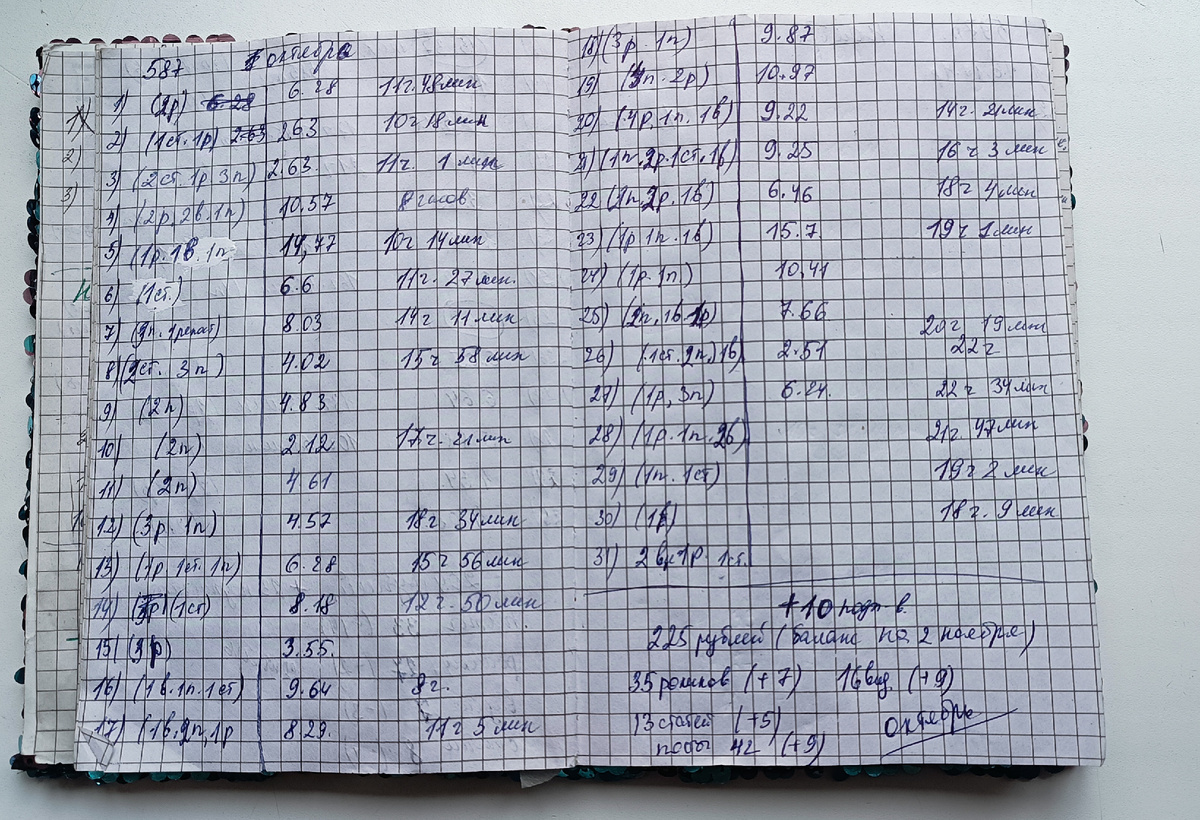 587 октябрь
1) (2р) 6.28 6.28 11ч.48мин
2) (1ст.1р) 2.63 2.63 10ч 18 мин
3) (2ст.1р 3п) 2.63. 11ч. 1 мин
4) (2р, 2в.1п) 10.57 8 часов
5) (1р.1в.1п. 14,77 10ч 14 мин
6) (1ст.) 6.6 11ч. 27 мин.
7) (3п.1репост) 8.03 14ч 11 мин
8) (2ст. 3п) 4.02 15ч 58 мин
9) (2п) 4.83
10) (2п) 2.12 17ч. 21 мин
11) (2п) 4 61
12) (3р. 1п) 4.57 18ч 34 мин
13) (1р 1ст. 1п) 6.28 15ч 56 мин
14) (1ст) 8.18 12ч. 50 мин
15) (3р) 3.55.
16) (1в.1п.1ст) 9.64 8ч.
17) (1в,2п,1р 8.29. 11ч 5 мин
18) (3р. 1п) 9.87
19) (1п. 2р) 10.97
20) (4р, 1п. 1в) 9.22 14ч. 21 мин
21) (1п.2р.1ст,1в) 9.25 16ч 3 мин
22 (1п,2р,1в) 6.46 18ч 4 мин
23) (1р 1п.1в) 15.7. 19ч 1 мин
24) (1р.1п.) 10,41
25) (2п,1в.1р) 7.66 20ч 19 мин
26) (1ст.2п,)1в) 2.51 22ч
27) (1р, 3п) 6.24. 22ч 34 мин
28) (1р.1п.2в) 21ч. 47 мин
29) (1п.1ст) 19ч 2 мин
30) (1в) 18ч. 9 мин
31) 2в,1р. 1ст.
+10 подп-в.
225 рублей (баланс на 2 ноября)
35 роликов (+7) 16 вид (+9)
13 статей (+5) октябрь
посты 42 (+9)